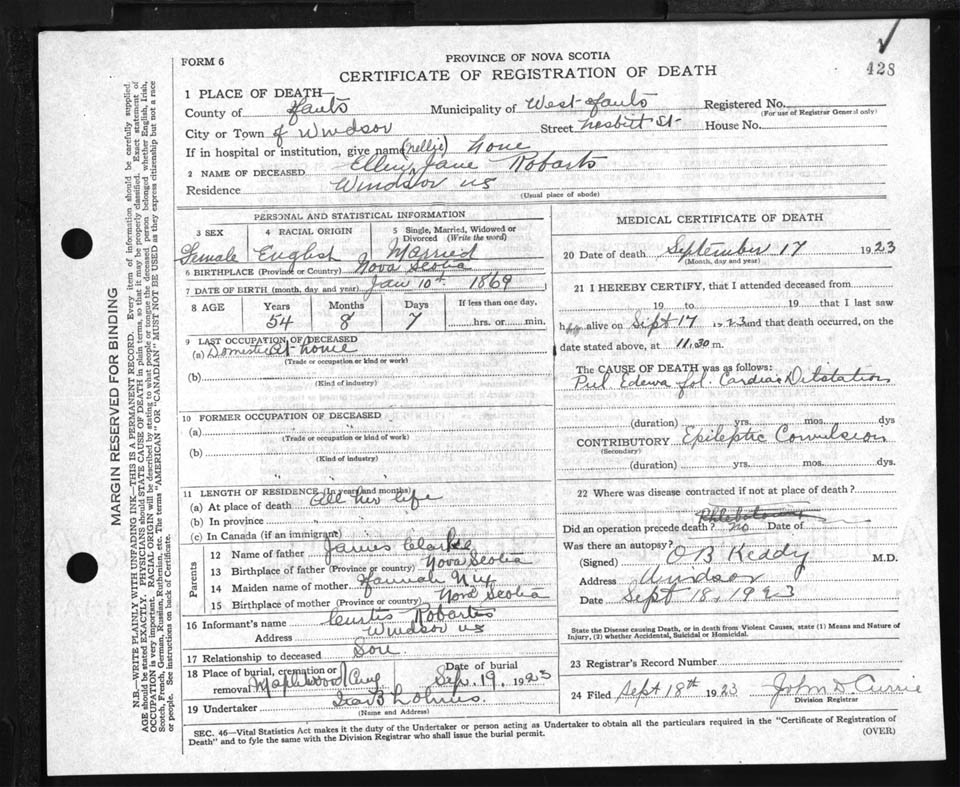 FORM 6
PROVINCE OF NOVA SCOTIA
CERTIFICATE OF REGISTRATION OF DEATH
428
1 PLACE OF DEATH—
County of Hants Municipality of West Hants Registered No.
(For use of Registrar General only)
City or Town of Windsor Street Nesbitt St- House No.
If in hospital or institution, give name none
(Nellie)
2 NAME OF DECEASED Ellen Jane Robarts
Residence Windsor NS
(Usual place of abode)
PERSONAL AND STATISTICAL INFORMATION
3 SEX 4 RACIAL ORIGIN 5 Single, Married, Widowed or Divorced (Write the word)
Female English Married
6 BIRTHPLACE (Province or Country) Nova Scotia
7 DATE OF BIRTH (month, day and year) Jan 10th 1869
8 AGE Years Months Days If less than one day,
54 8 7 hrs. or min.
9 LAST OCCUPATION OF DECEASED
(a) Domestic at home
(Trade or occupation or kind or work)
(b)
(Kind of industry)
10 FORMER OCCUPATION OF DECEASED
(a) "
(Trade or occupation or kind of work)
(b)
(Kind of industry)
11 LENGTH OF RESIDENCE (In years and months)
(a) At place of death All her life
(b) In province " "
(c) In Canada (if an immigrant)
Parents
12 Name of father James Clarke
13 Birthplace of father (Province or country) Nova Scotia
14 Maiden name of mother Hannah
15 Birthplace of mother (Province or country) Nova Scotia
16 Informant's name Curtis Robarts
Address Windsor NS
17 Relationship to deceased Son
18 Place of burial, cremation or removal Maplewood Cem Date of burial Sep. 19, 1923
19 Undertaker
(Name and Address)
MEDICAL CERTIFICATE OF DEATH
20 Date of death September 17 1923
(Month, day and year)
21 I HEREBY CERTIFY, that I attended deceased from
19 to 19 that I last saw
h alive on Sept 17 1923 and that death occurred, on the
date stated above, at 11.30 m.
The CAUSE OF DEATH was as follows:
Pul Edema fol. Cardiac Dilatation
(duration) yrs. mos. dys
CONTRIBUTORY Epileptic Convulsion
(Secondary)
(duration) yrs. mos. dys.
22 Where was disease contracted if not at place of death?
Did an operation precede death? no Date of
Was there an autopsy?
(Signed) O B Keddy M.D.
Address Windsor
Date Sept 18, 1923
State the Disease causing Death, or in death from Violent Causes, state (1) Means and Nature of Injury, (2) whether Accidental, Suicidal or Homicidal.
23 Registrar's Record Number
24 Filed Sept 18th 1923 John D. Currie
Division Registrar
SEC. 46—Vital Statistics Act makes it the duty of the Undertaker or person acting as Undertaker to obtain all the particulars required in the "Certificate of Registration of
Death" and to fyle the same with the Division Registrar who shall issue the burial permit. (OVER)
MARGIN RESERVED FOR BINDING
N.B.—WRITE PLAINLY WITH UNFADING INK—THIS IS A PERMANENT RECORD. Every item of information should be carefully supplied.
AGE should be stated EXACTLY. PHYSICIANS should STATE CAUSE OF DEATH in plain terms, so that it may be properly classified. Exact statement of
OCCUPATION is very important. RACIAL ORIGIN will be described by stating to what people or tongue the deceased person belonged whether English, Irish,
Scotch, French, German, Russian, Ruthenian, etc. The terms "AMERICAN" OR "CANADIAN" MUST NOT BE USED as they express citizenship but not a race
or people. See instructions on back of Certificate.